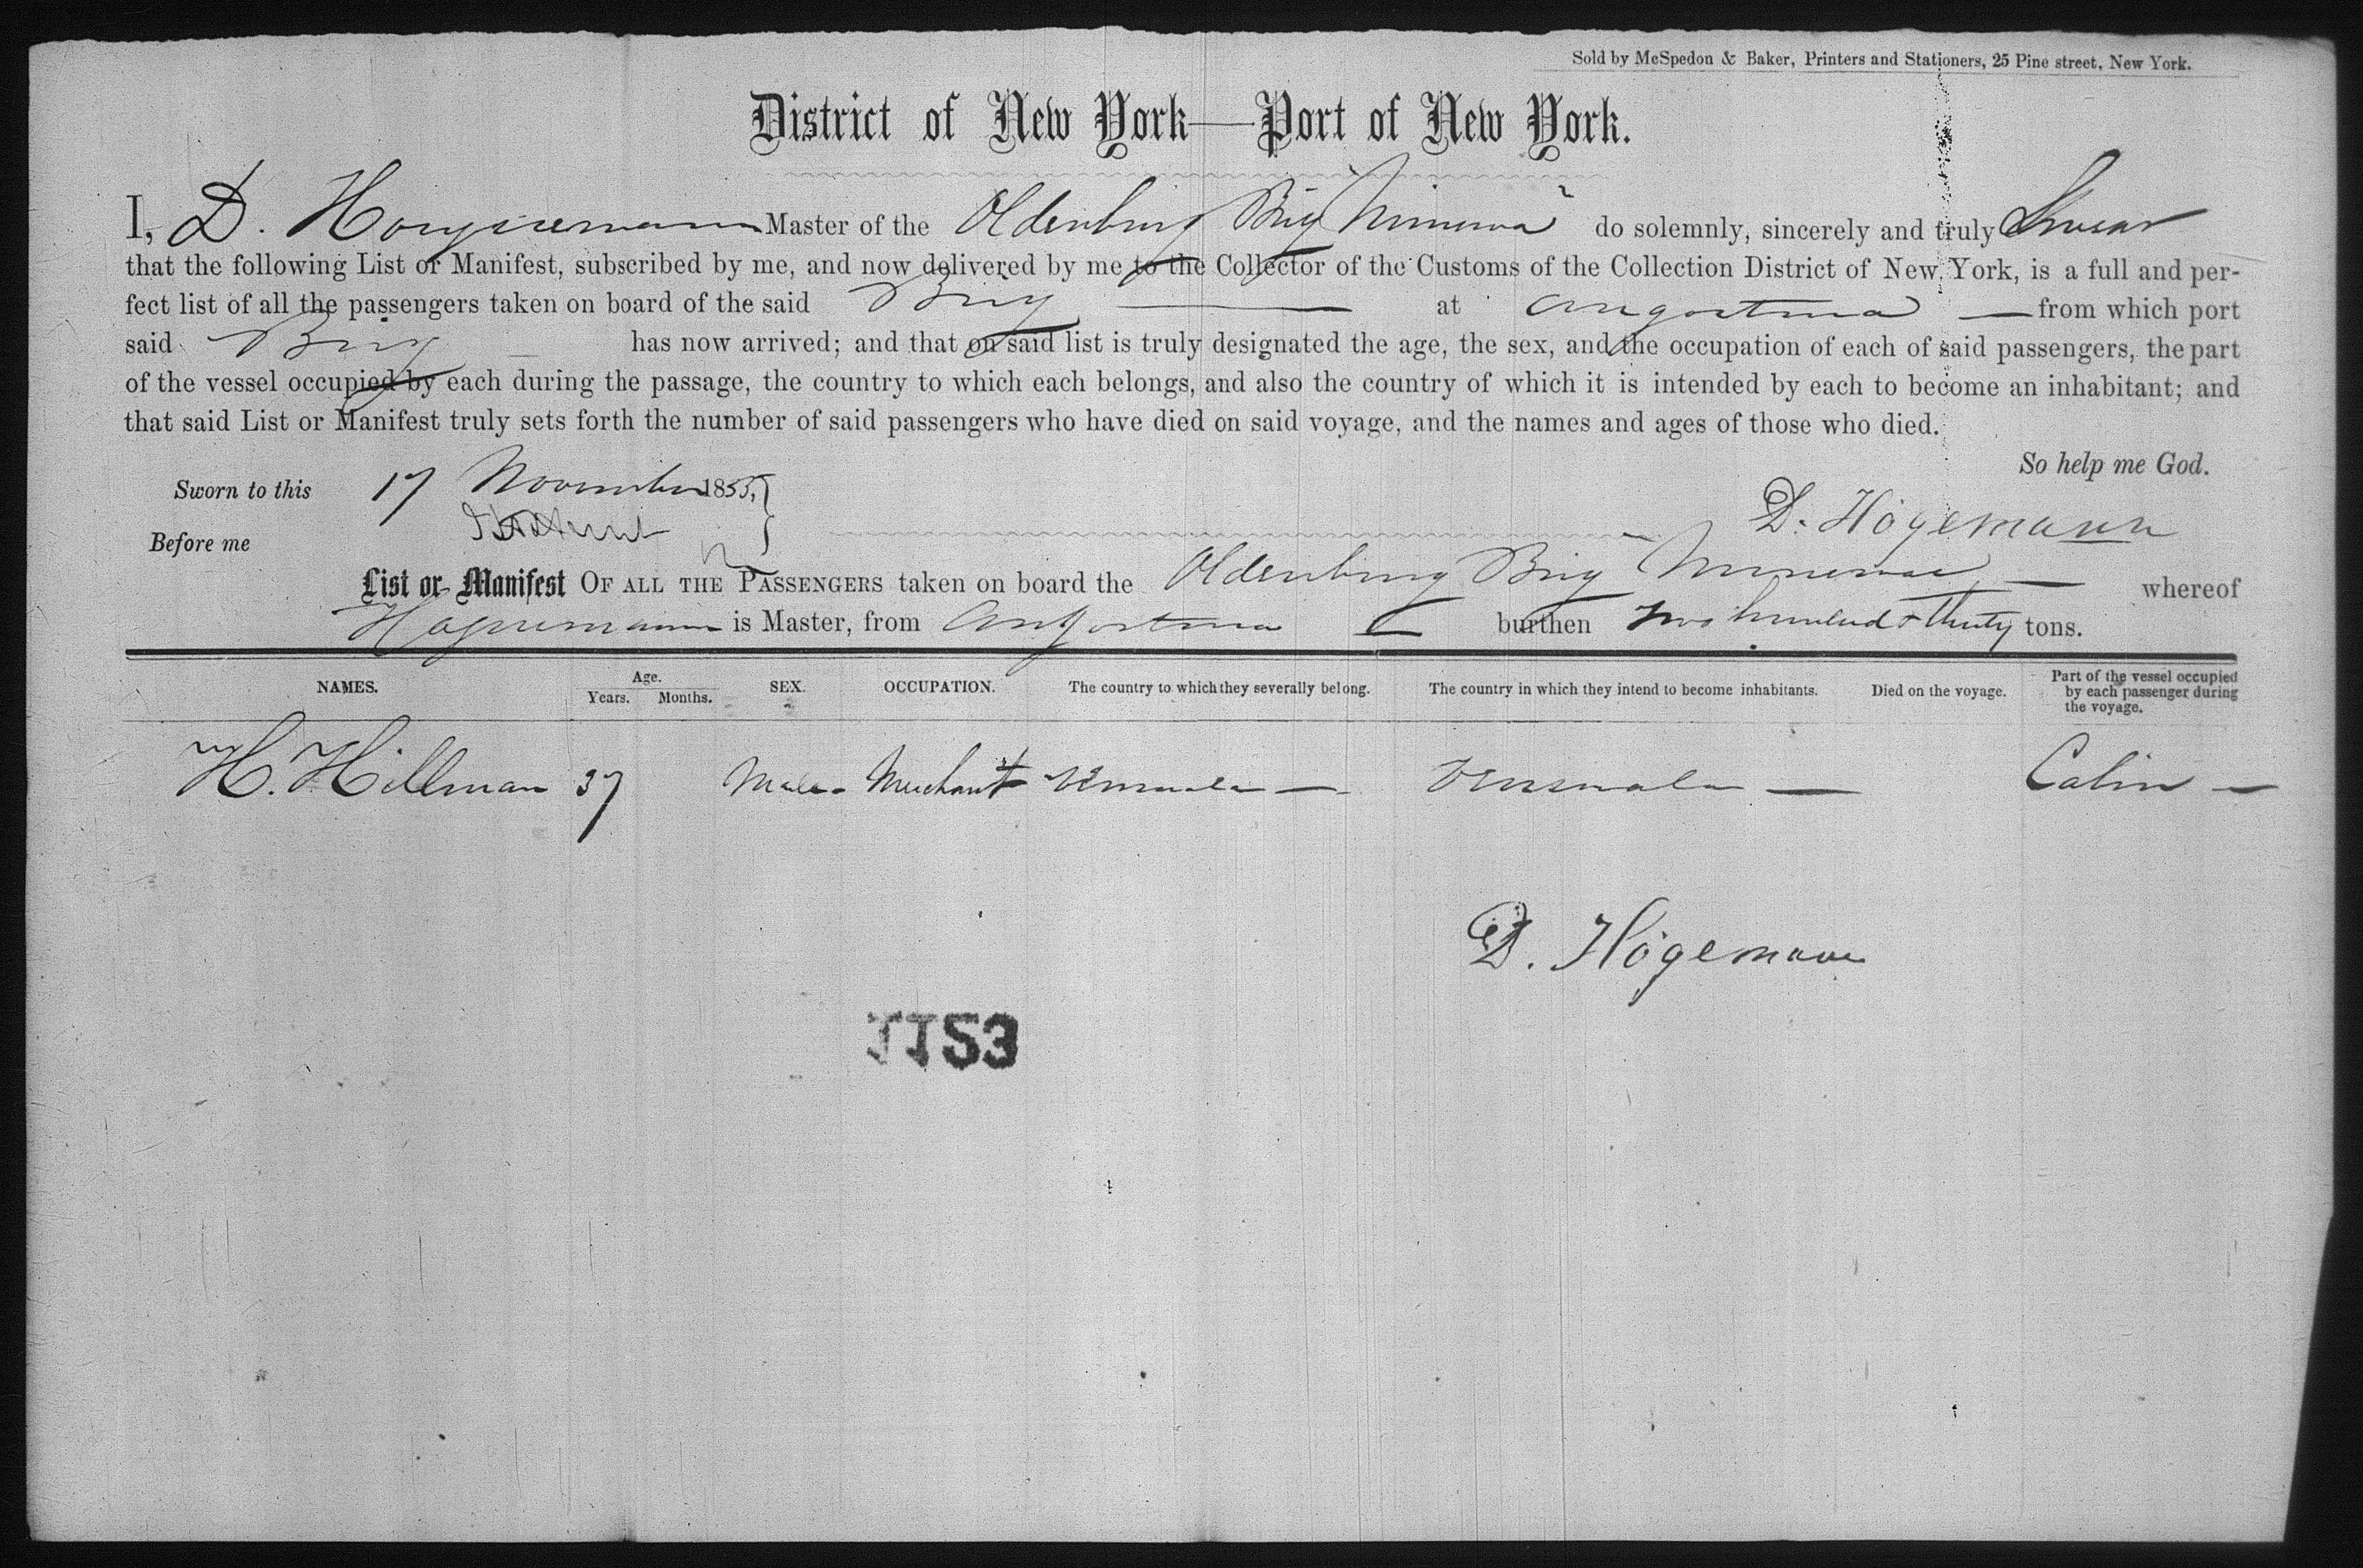 Sold by McSpedon & Baker, Printers and Stationers, 25 Pine street, New York.
District of New York—Port of New York.
I, D. Hoegsemann Master of the Oldenburg Brig "Minerva" do solemnly, sincerely and truly Swear
that the following List or Manifest, subscribed by me, and now delivered by me to the Collector of the Customs of the Collection District of New York, is a full and per-
fect list of all the passengers taken on board of the said Brig — at Angostura — from which port
said Brig — has now arrived; and that on said list is truly designated the age, the sex, and the occupation of each of said passengers, the part
of the vessel occupied by each during the passage, the country to which each belongs, and also the country of which it is intended by each to become an inhabitant; and
that said List or Manifest truly sets forth the number of said passengers who have died on said voyage, and the names and ages of those who died.
So help me God.
Sworn to this 17 November 1855,
D. Högemann
Before me
List or Manifest OF ALL THE PASSENGERS taken on board the Oldenburg Brig Minerva — whereof
is Master, from Angostura burthen two hundred & thirty tons.
NAMES. Age. Years. Months. SEX. OCCUPATION. The country to which they severally belong. The country in which they intend to become inhabitants. Died on the voyage. Part of the vessel occupied by each passenger during the voyage.
H. Hillman 37 Male Merchant Venezuela — Venezuela — Cabin —
D. Högemann
1153